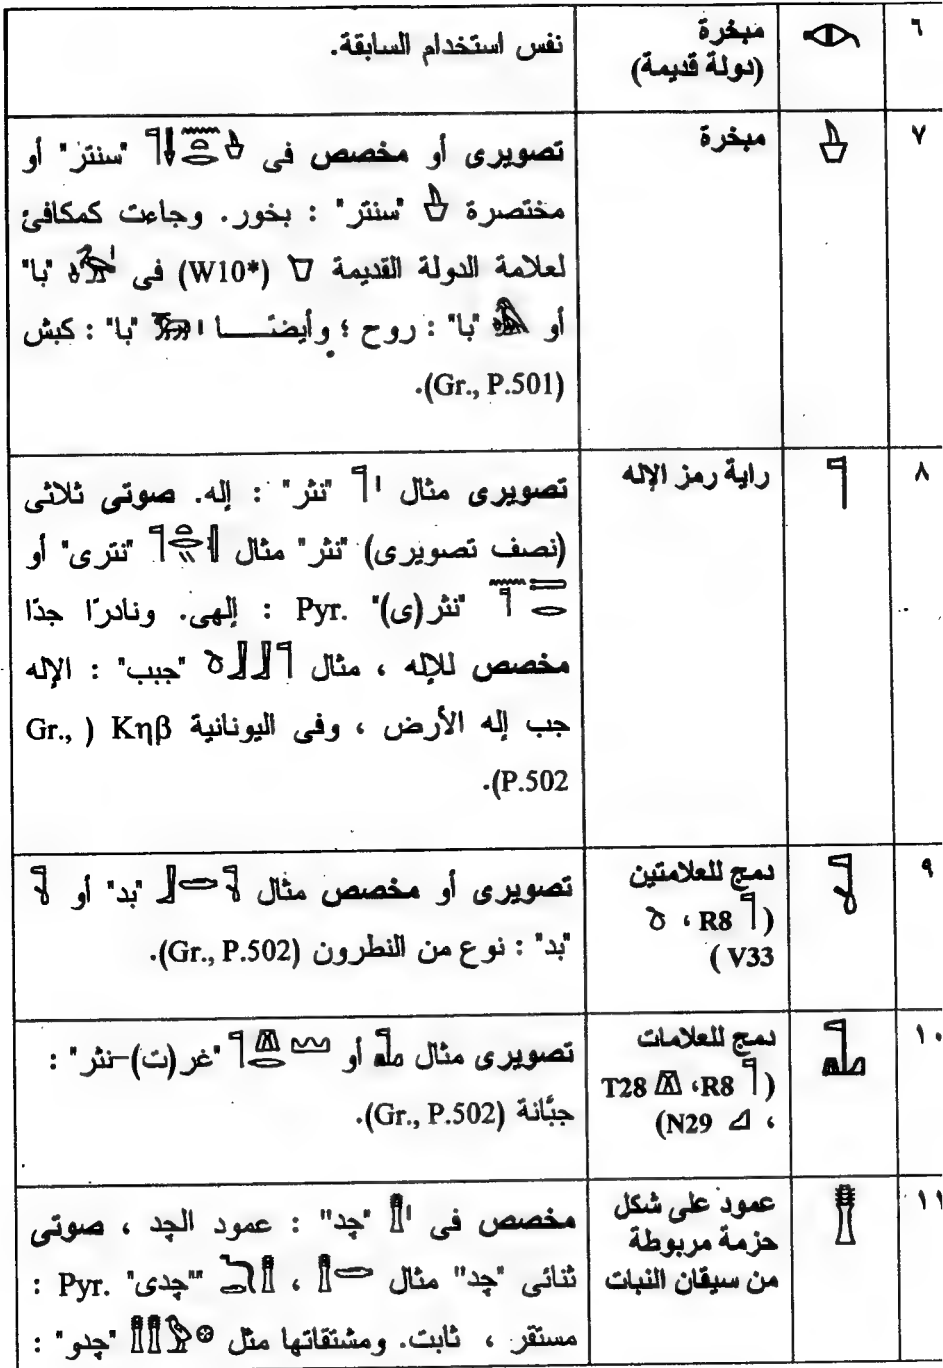 ٦
مبخرة
(دولة قديمة)
نفس استخدام السابقة.
٧
مبخرة
تصويرى أو مخصص فى "سنتر" أو
مختصرة "سنتر" : بخور. وجاءت كمكافئ
لعلامة الدولة القديمة (W10*) فى "با"
أو "با" : روح ؛ وأيضًا "با" : كبش
(Gr., P.501).
٨
راية رمز الإله
تصويرى مثال "نثر" : إله. صوتى ثلاثى
(نصف تصويرى) "نثر" مثال "نترى" أو
"نثر(ى)" Pyr. : إلهى. ونادرًا جدًا
مخصص للإله ، مثال "جبب" : الإله
جب إله الأرض ، وفى اليونانية Κηβ ( Gr.,
P.502).
٩
دمج للعلامتين
( R8 ،
V33 )
تصويرى أو مخصص مثال "بد" أو
"بد" : نوع من النطرون (Gr., P.502).
١٠
دمج للعلامات
( R8، T28
، N29)
تصويرى مثال أو "غر(ت)-نثر" :
جبَّانة (Gr., P.502).
١١
عمود على شكل
حزمة مربوطة
من سيقان النبات
مخصص فى "چد" : عمود الچد ، صوتى
ثنائى "چد" مثال ، "چدى" Pyr. :
مستقر ، ثابت. ومشتقاتها مثل "چدو" :